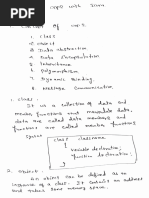 OOPS with Java
1. Concepts Of OOPS
1. Class
2. Object
3. Data Abstraction
4. Data Encapsulation
5. Inheritance
6. Polymorphism
7. Dynamic Binding
8. Message Communication
1. Class:
It is a collection of data and
member functions that manipulate data.
data are called data members and
functions are called member functions
Syntax:
class classname
{
variable declaration;
function declaration;
}
2. Object:
An object can be defined as an
instance of a class. It contain an address
and takes some memory space.